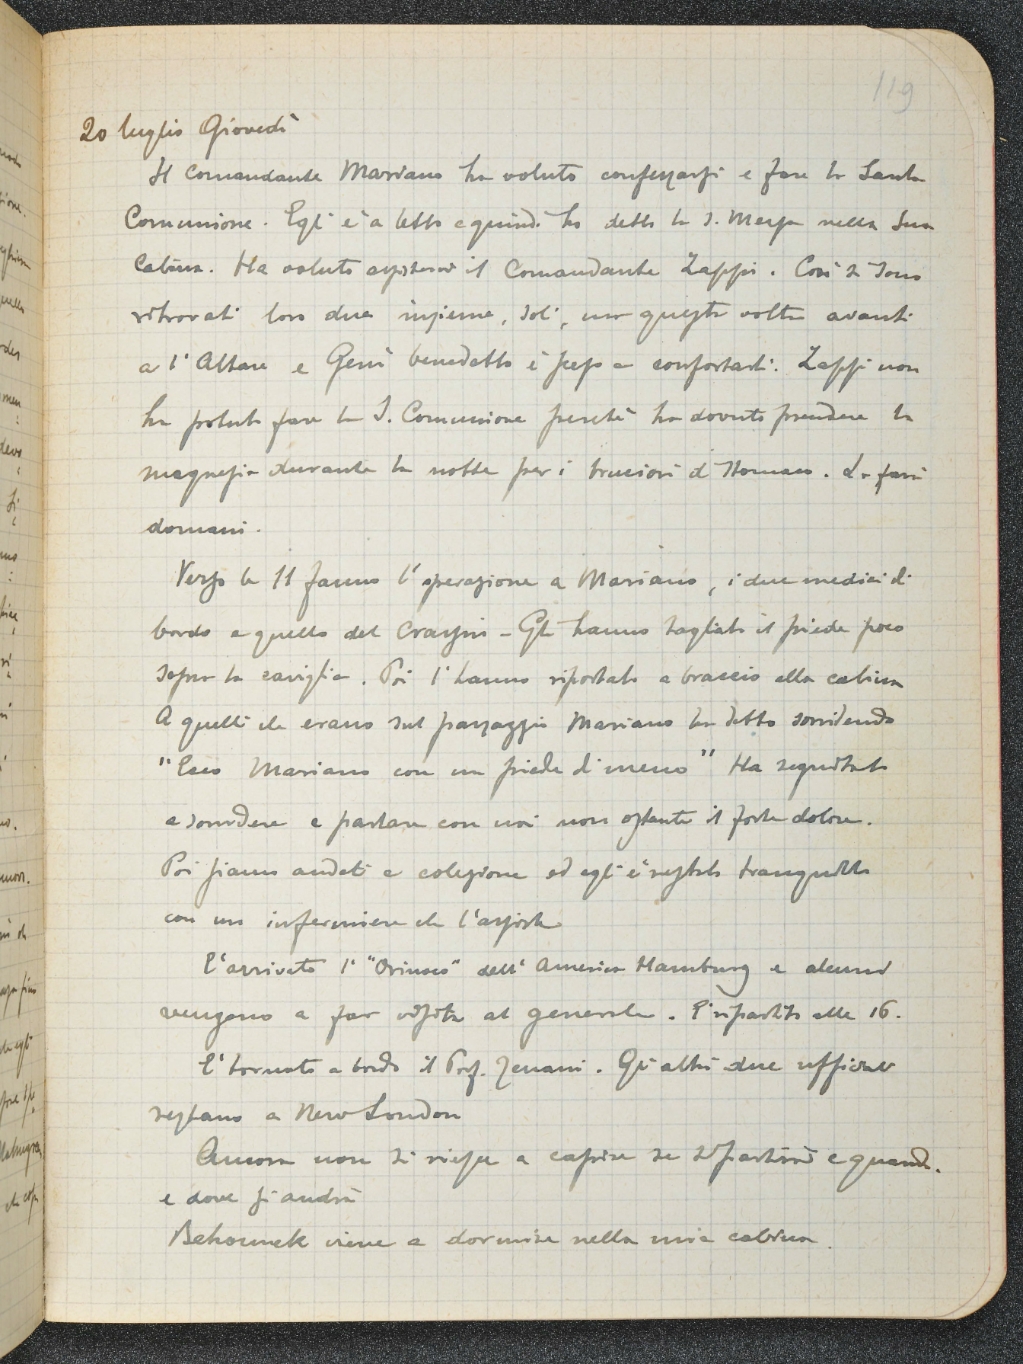 119
20 luglio Giovedì
Il Comandante Mariano ha voluto confessarsi e fare la Santa
Comunione. Egli è a letto e quindi ho detto la S. Messa nella sua
Cabina. Ha voluto assistervi il Comandante Zappi. Così si sono
ritrovati loro due insieme, soli, ma questa volta avanti
a l'Altare e Gesù benedetto è sceso a confortarli. Zappi non
ha potuto fare la S. Comunione perché ha dovuto prendere la
magnesia durante la notte per i bruciori di stomaco. La farà
domani.
Verso le 11 fanno l'operazione a Mariano, i due medici di
bordo e quello del Krassin - Gli hanno tagliato il piede poco
sopra la caviglia. Poi l'hanno riportato a braccio alla cabina
A quelli che erano sul passaggio Mariano ha detto sorridendo
"Ecco Mariano con un piede di meno" Ha seguitato
a sorridere e parlare con noi non ostante il forte dolore.
Poi siamo andati a colezione ed egli è restato tranquillo
con un infermiere che l'assiste
È arrivato l' "Orinoco" dell' America Hamburg e alcuni
vengono a far visita al generale. È ripartito alle 16.
È tornato a bordo il Prof. Gli altri due ufficiali
restano a New London
Ancora non si riesce a capire se si partirà e quando.
e dove si andrà
Behounek viene a dormire nella mia cabina.